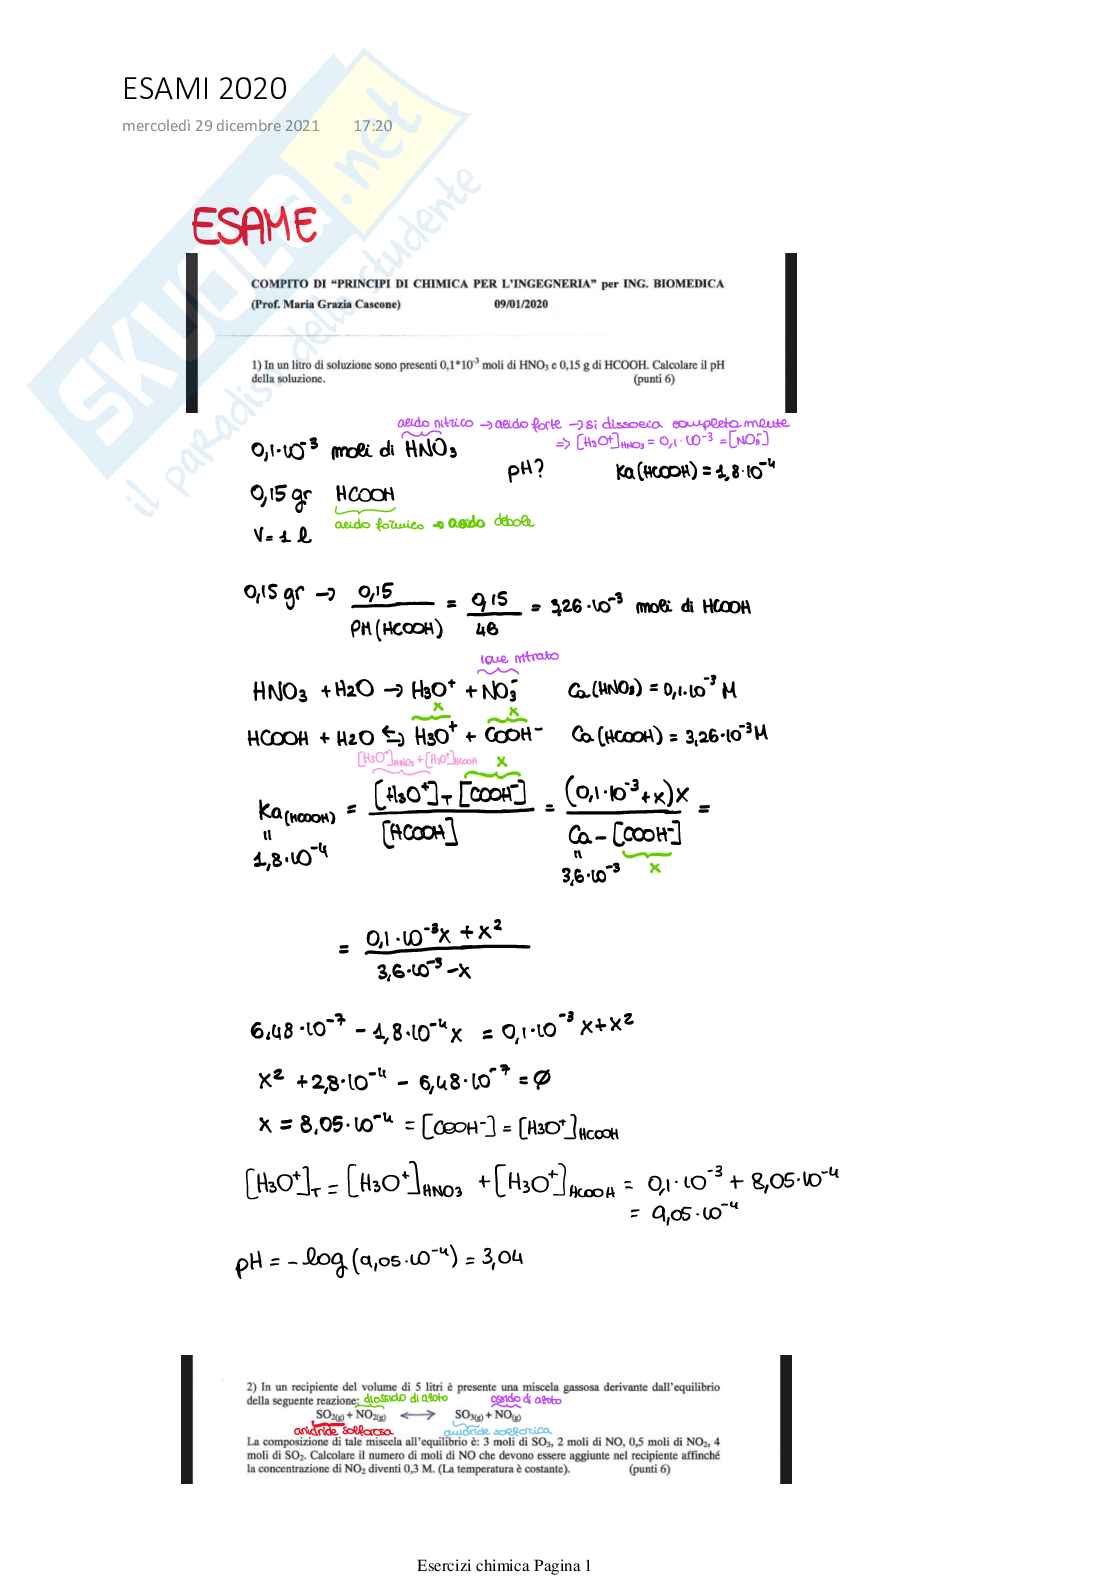 ESAMI 2020
mercoledì 29 dicembre 2021 17:20
SKUOLA.net
il paradiso dello studente
ESAME
COMPITO DI “PRINCIPI DI CHIMICA PER L'INGEGNERIA” per ING. BIOMEDICA
(Prof. Maria Grazia Cascone) 09/01/2020
1) In un litro di soluzione sono presenti 0,1*10⁻³ moli di HNO₃ e 0,15 g di HCOOH. Calcolare il pH
della soluzione. (punti 6)
acido nitrico → acido forte → si dissocia completamente
0,1·10⁻³ moli di HNO₃ => [H3O⁺]HNO₃ = 0,1·10⁻³ = [NO₃⁻]
pH? Ka(HCOOH) = 1,8·10⁻⁴
0,15 gr HCOOH
acido formico → acido debole
V = 1 l
0,15 gr → 0,15 / PM(HCOOH) = 0,15 / 46 = 3,26·10⁻³ moli di HCOOH
ione nitrato
HNO₃ + H2O → H3O⁺ + NO₃⁻ Ca(HNO₃) = 0,1·10⁻³ M
x x
HCOOH + H2O ⇆ H3O⁺ + COOH⁻ Ca(HCOOH) = 3,26·10⁻³ M
[H3O⁺]HNO₃ + [H3O⁺]HCOOH x
Ka(HCOOH) = [H3O⁺]T - [COOH⁻] / [HCOOH] = (0,1·10⁻³ + x)x / Ca - [COOH⁻] =
" " x
1,8·10⁻⁴ 3,6·10⁻³
= 0,1·10⁻³x + x² / 3,6·10⁻³ - x
6,48·10⁻⁷ - 1,8·10⁻⁴x = 0,1·10⁻³x + x²
x² + 2,8·10⁻⁴ - 6,48·10⁻⁷ = Ø
x = 8,05·10⁻⁴ = [COOH⁻] = [H3O⁺]HCOOH
[H3O⁺]T = [H3O⁺]HNO3 + [H3O⁺]HCOOH = 0,1·10⁻³ + 8,05·10⁻⁴
= 9,05·10⁻⁴
pH = -log(9,05·10⁻⁴) = 3,04
2) In un recipiente del volume di 5 litri è presente una miscela gassosa derivante dall'equilibrio
della seguente reazione: diossido di azoto ossido di azoto
SO₂(g) + NO₂(g) ⟷ SO₃(g) + NO(g)
anidride solforosa anidride solforica
La composizione di tale miscela all'equilibrio è: 3 moli di SO₃, 2 moli di NO, 0,5 moli di NO₂, 4
moli di SO₂. Calcolare il numero di moli di NO che devono essere aggiunte nel recipiente affinché
la concentrazione di NO₂ diventi 0,3 M. (La temperatura è costante). (punti 6)
Esercizi chimica Pagina 1